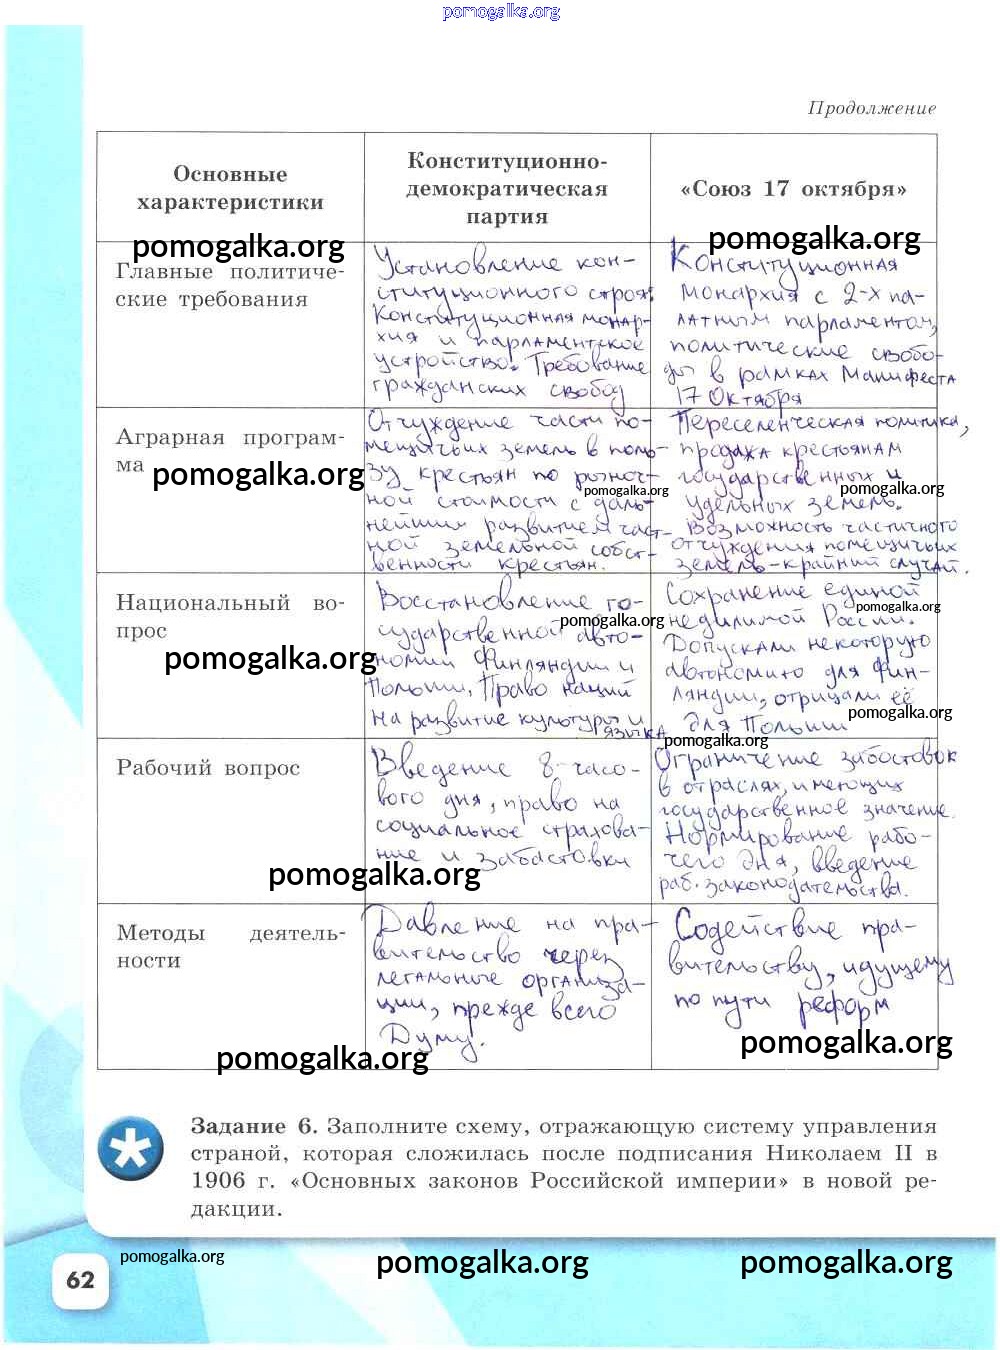 pomogalka.org
Продолжение
Основные
характеристики
Конституционно-
демократическая
партия
«Союз 17 октября»
pomogalka.org
pomogalka.org
Главные политиче-
ские требования
Установление кон-
ституционного строя.
Конституционная монар-
хия и парламентское
устройство. Требование
гражданских свобод
Конституционная
монархия с 2-х па-
латным парламентом,
политические свобо-
ды в рамках Манифеста
17 Октября
Аграрная програм-
ма
pomogalka.org
Отчуждение части по-
мещичьих земель в поль-
зу крестьян по рыноч-
ной стоимости с даль-
нейшим развитием част-
ной земельной собст-
венности крестьян.
pomogalka.org
Переселенческая политика,
продажа крестьянам
государственных и
удельных земель.
Возможность частичного
отчуждения помещичьих
земель-крайний случай.
pomogalka.org
Национальный во-
прос
pomogalka.org
Восстановление го-
сударственной авто-
номии Финляндии и
Польши, Право наций
на развитие культуры и
языка
pomogalka.org
Сохранение единой
неделимой России.
Допускали некоторую
автономию для Фин-
ляндии, отрицали её
для Польши
pomogalka.org
pomogalka.org
pomogalka.org
Рабочий вопрос
Введение 8-часо-
вого дня, право на
социальное страхова-
ние и забастовки
pomogalka.org
Ограничение забостовок
в отраслях, имеющих
государственное значение.
Нормирование рабо-
чего дня, введение
раб. законодательства.
Методы деятель-
ности
Давление на пра-
вительство через
легальные организа-
ции, прежде всего
Думу.
Содействие пра-
вительству, идущему
по пути реформ
pomogalka.org
pomogalka.org
Задание 6. Заполните схему, отражающую систему управления
страной, которая сложилась после подписания Николаем II в
1906 г. «Основных законов Российской империи» в новой ре-
дакции.
62
pomogalka.org
pomogalka.org
pomogalka.org